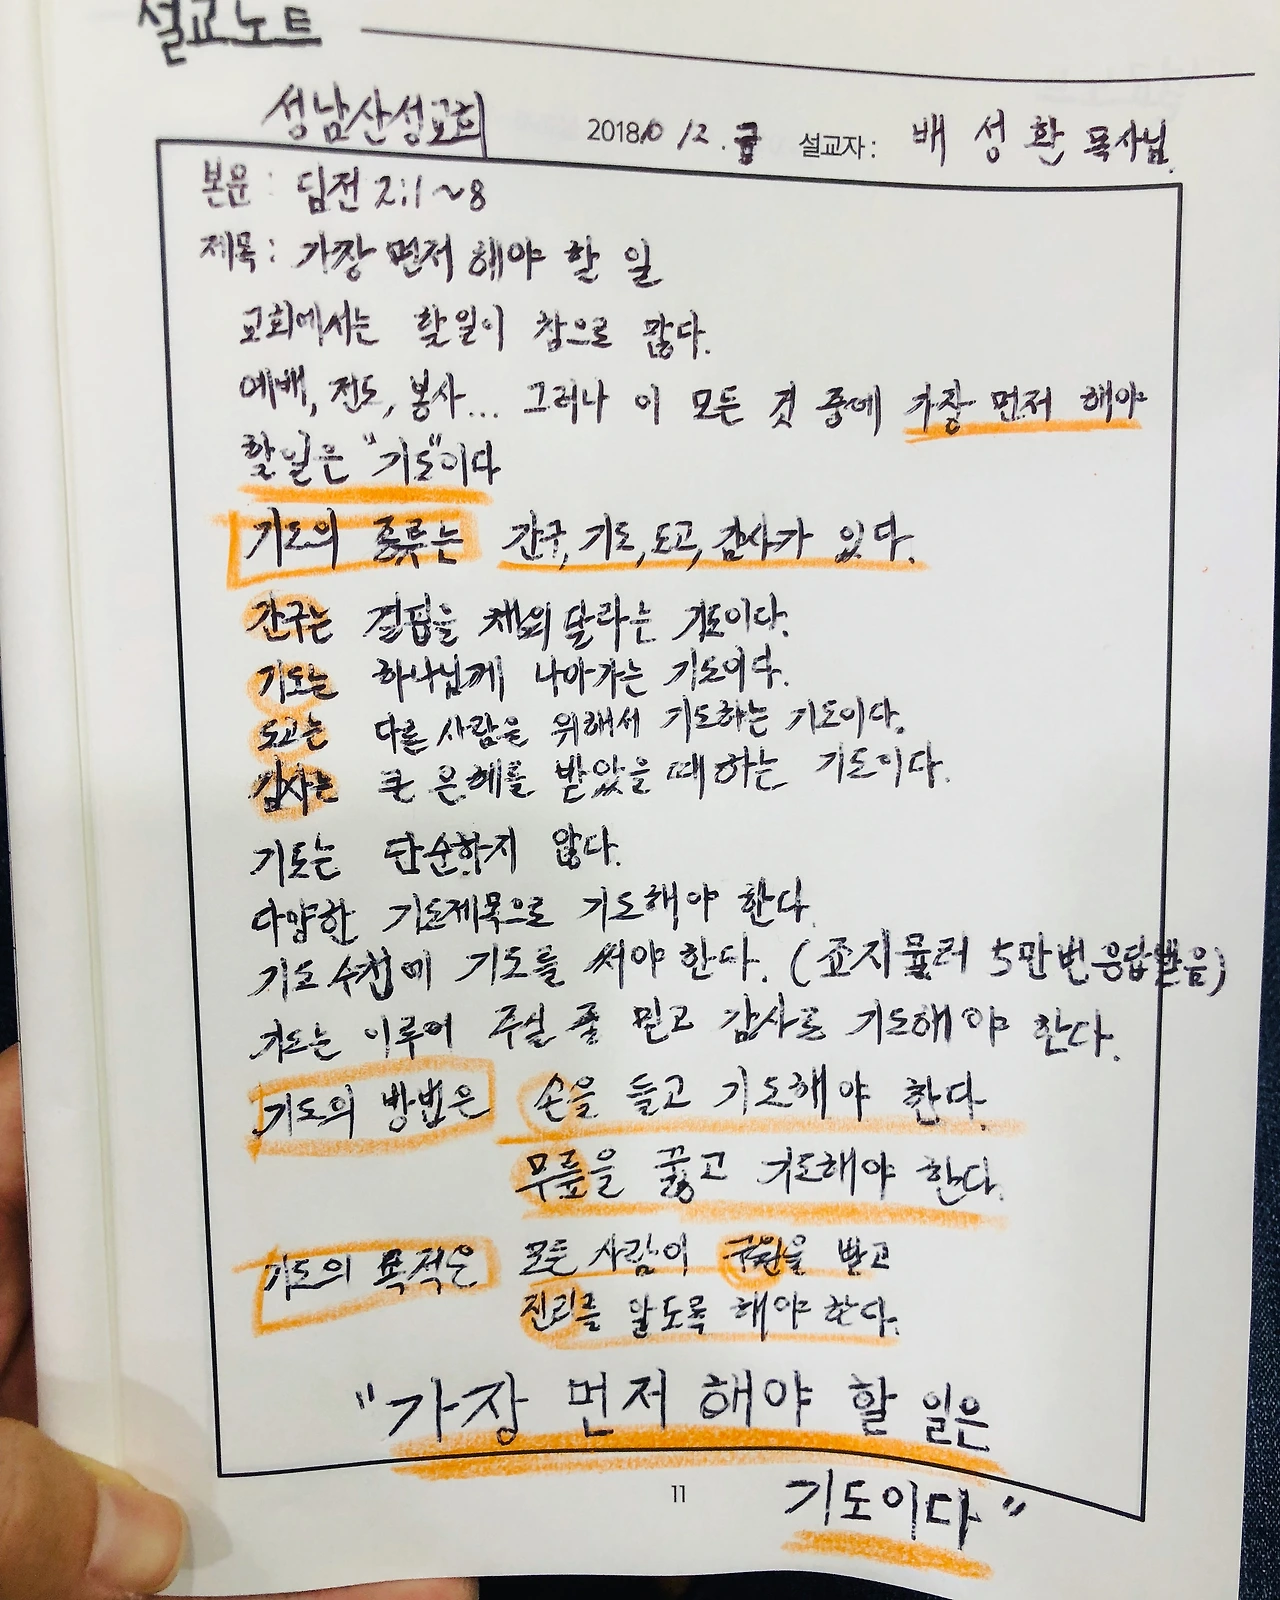 설교노트
성남산성교회 2018.10.12.금 설교자: 배성환 목사님
본문: 딤전 2:1~8
제목: 가장 먼저 해야 할 일
교회에서는 할일이 참으로 많다.
예배, 전도, 봉사... 그러나 이 모든 것 중에 가장 먼저 해야
할일은 "기도"이다
기도의 종류는 간구, 기도, 도고, 감사가 있다.
간구는 결핍을 채워달라는 기도이다.
기도는 하나님께 나아가는 기도이다.
도고는 다른 사람을 위해서 기도하는 기도이다.
감사는 큰 은혜를 받았을 때 하는 기도이다.
기도는 단순하지 않다.
다양한 기도제목으로 기도해야 한다.
기도 수첩에 기도를 써야 한다. (죠지뮬러 5만번 응답받음)
기도는 이루어 주실 줄 믿고 감사로 기도해야 한다.
기도의 방법은 손을 들고 기도해야 한다.
무릎을 꿇고 기도해야 한다.
기도의 목적은 모든 사람이 구원을 받고
진리를 알도록 해야 한다.
"가장 먼저 해야 할 일은
기도이다"
11